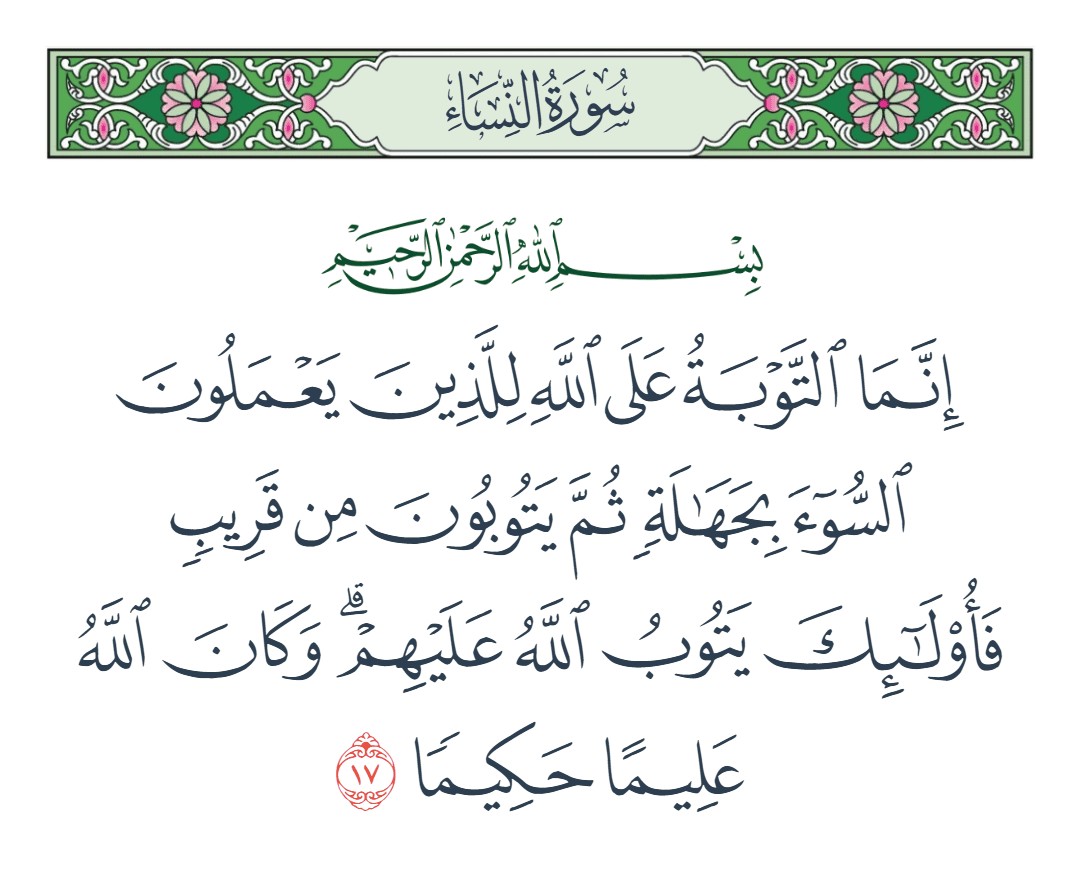 سُورَةُ النِّسَاءِ
بِسْمِ ٱللَّهِ ٱلرَّحْمَٰنِ ٱلرَّحِيمِ
إِنَّمَا ٱلتَّوْبَةُ عَلَى ٱللَّهِ لِلَّذِينَ يَعْمَلُونَ
ٱلسُّوٓءَ بِجَهَٰلَةٖ ثُمَّ يَتُوبُونَ مِن قَرِيبٖ
فَأُوْلَٰٓئِكَ يَتُوبُ ٱللَّهُ عَلَيْهِمْۗ وَكَانَ ٱللَّهُ
عَلِيمًا حَكِيمٗا ١٧